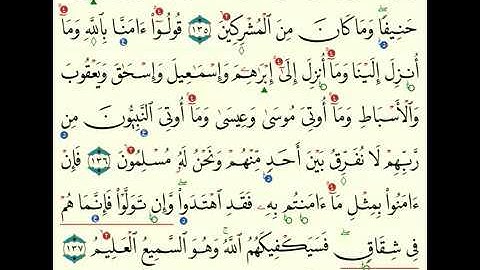 حَنِيفًا ۖ وَمَا كَانَ مِنَ الْمُشْرِكِينَ ١٣٥ قُولُوٓا۟ ءَامَنَّا بِاللَّهِ وَمَآ
أُنزِلَ إِلَيْنَا وَمَآ أُنزِلَ إِلَىٰٓ إِبْرَٰهِـۧمَ وَإِسْمَٰعِيلَ وَإِسْحَٰقَ وَيَعْقُوبَ
وَالْأَسْبَاطِ وَمَآ أُوتِىَ مُوسَىٰ وَعِيسَىٰ وَمَآ أُوتِىَ النَّبِيُّونَ مِن
رَّبِّهِمْ لَا نُفَرِّقُ بَيْنَ أَحَدٍ مِّنْهُمْ وَنَحْنُ لَهُۥ مُسْلِمُونَ ١٣٦ فَإِنْ
ءَامَنُوا۟ بِمِثْلِ مَآ ءَامَنتُم بِهِۦ فَقَدِ اهْتَدَوا۟ ۖ وَّإِن تَوَلَّوْا۟ فَإِنَّمَا هُمْ
فِى شِقَاقٍ ۖ فَسَيَكْفِيكَهُمُ اللَّهُ ۚ وَهُوَ السَّمِيعُ الْعَلِيمُ ١٣٧